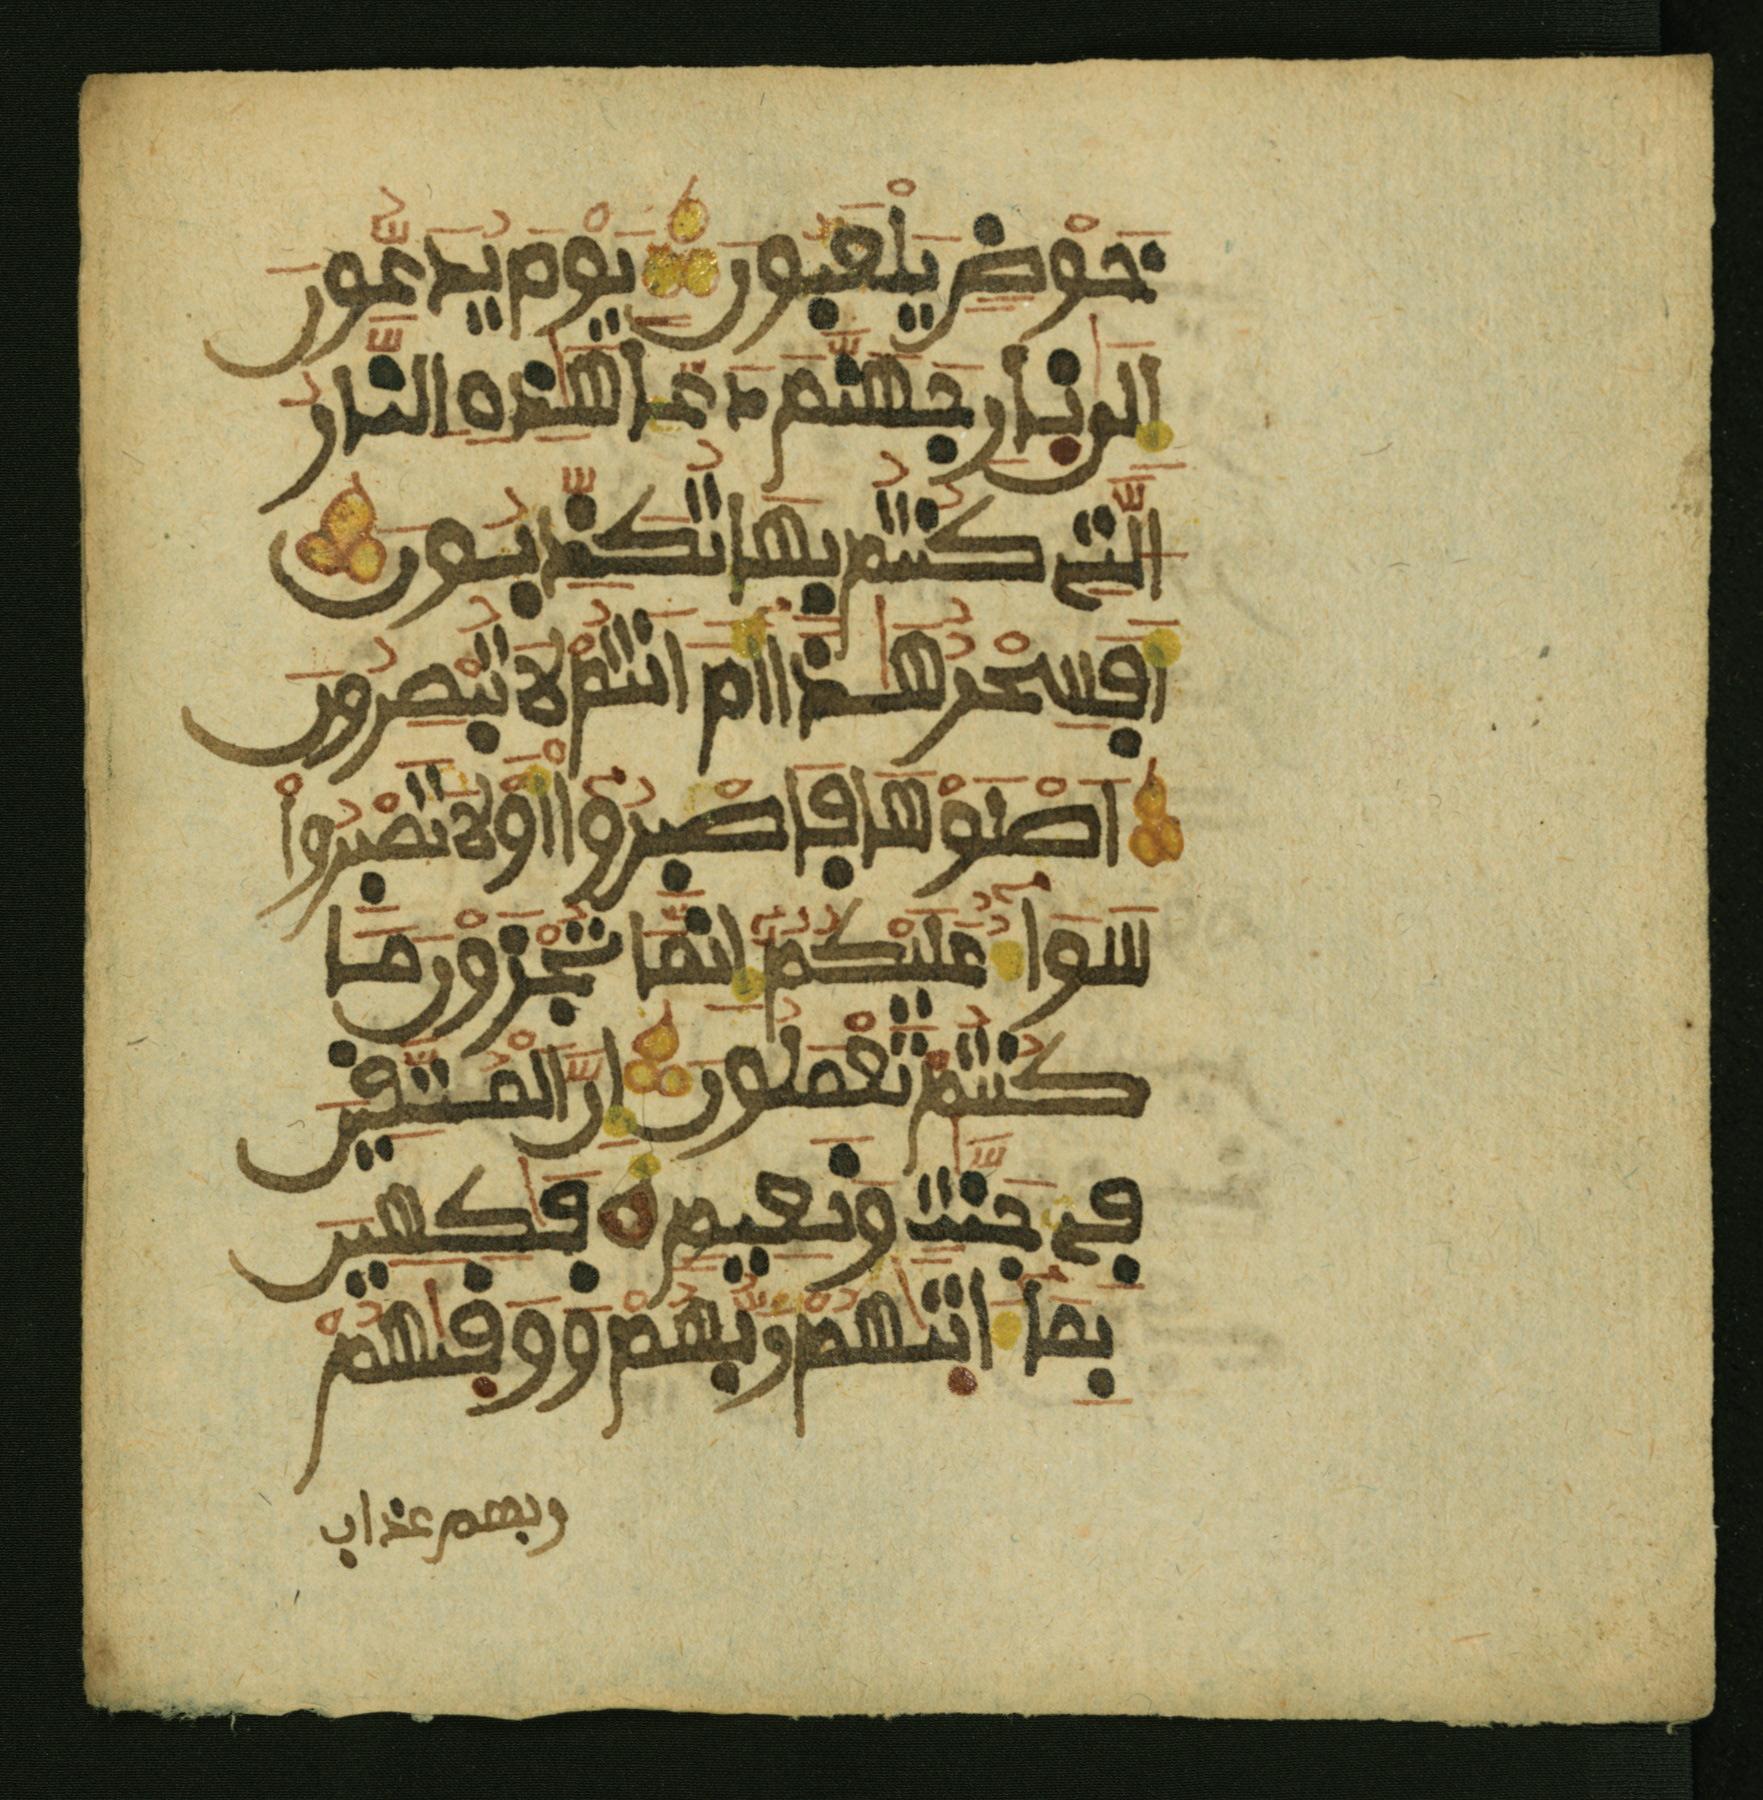 خَوْضٖ يَلْعَبُونَ يَوْمَ يُدَعُّونَ
إِلَىٰ نِارِ جَهَنَّمَ دَعّاً هَٰذِهِ النَّارُ
الَّتِے كُنتُم بِهَا تُكَذِّبُونَ
أَفَسِحْرٌ هَٰذَا أَمَ اَنتُمْ لَا تُبْصِرُونَ
اَصْلَوْهَا فَاصْبِرُواْ أَوْ لَا تَصْبِرُواْ
سَوَآءٌ عَلَيْكُمُۥ إِنَّمَا تُجْزَوْنَ مَا
كُنتُمْ تَعْمَلُونَ إِنَّ الْمُتَّقِينَ
فِے جَنَّٰتٖ وَنَعِيمٖ فَٰكِهِينَ
بِمَآ ءَاتَىٰهُمْ رَبُّهُمْ وَوَقَىٰهُمْ
ربهم عذاب